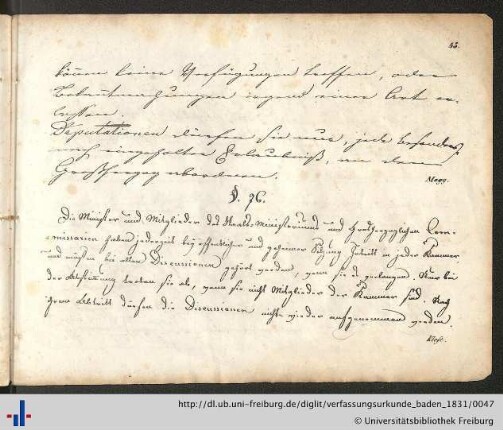 83.
können keine Verfügungen treffen, oder
Bekanntmachungen irgend einer Art er-
lassen.
Deputationen dürfen sie nur, jede besonders,
nach eingeholter Erlaubniß, an den
Großherzog abordnen.
Mayr.
§. 76.
Die Minister und Mitglieder des Staats-Ministeriums und Großherzoglichen Com-
missarien haben jederzeit bei öffentlicher und geheimer Sitzung Zutritt in jeder Kammer
und müssen bei allen Discussionen gehört werden, wenn sie es verlangen. Nur bei
der Abstimmung treten sie ab, wenn sie nicht Mitglieder der Kammer sind. Nach
ihrem Abtritt dürfen die Discussionen nicht wieder aufgenommen werden.
http://dl.ub.uni-freiburg.de/diglit/verfassungsurkunde_baden_1831/0047
© Universitätsbibliothek Freiburg